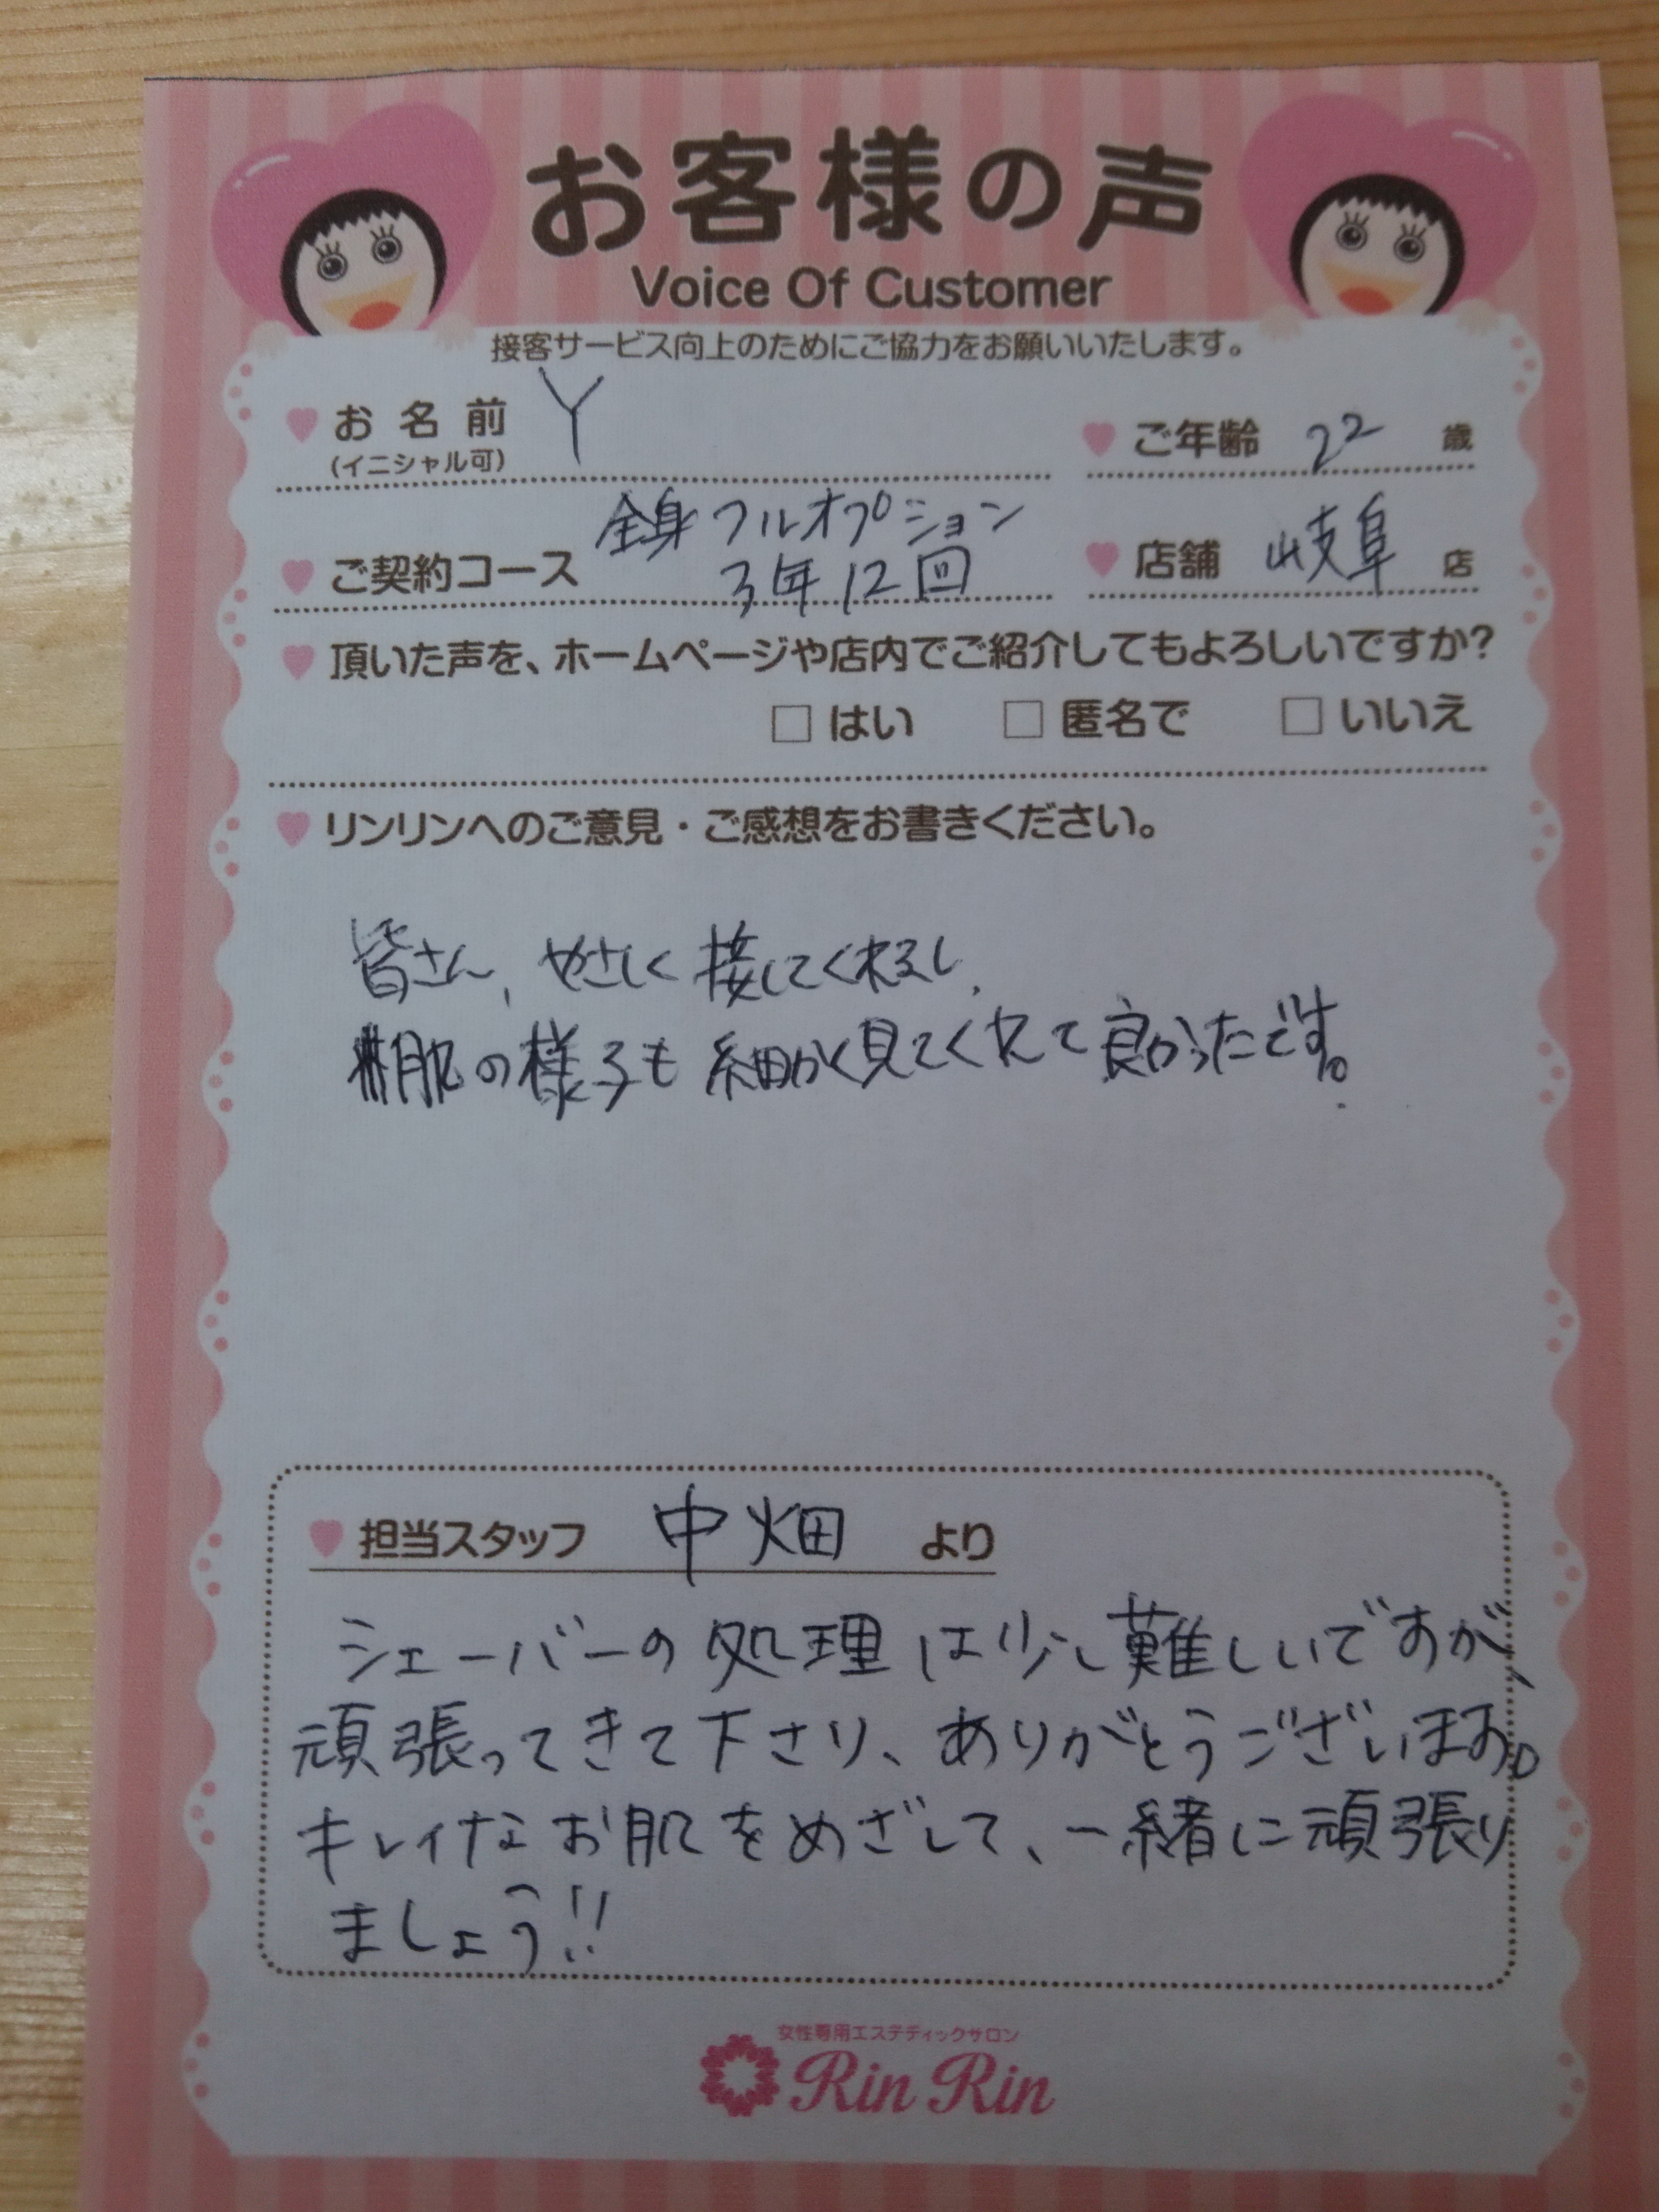 お客様の声
Voice Of Customer
接客サービス向上のためにご協力をお願いいたします。
お名前 Y
(イニシャル可)
ご年齢 22 歳
全身フルオプション
ご契約コース 3年12回
店舗 岐阜 店
頂いた声を、ホームページや店内でご紹介してもよろしいですか?
□ はい □ 匿名で □ いいえ
リンリンへのご意見・ご感想をお書きください。
皆さん、やさしく接してくれるし、
肌の様子も細かく見てくれて良かったです。
担当スタッフ 中畑 より
シェーバーの処理は少し難しいですが、
頑張ってきて下さり、ありがとうございます。
キレイなお肌をめざして、一緒に頑張り
ましょう!!
女性専用エステティックサロン
Rin Rin